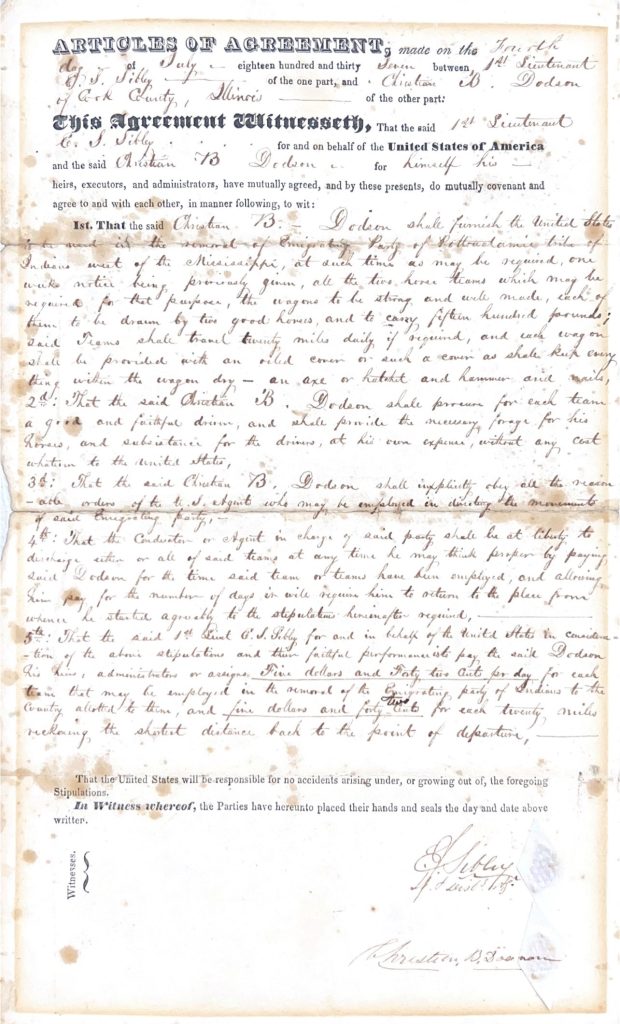 ARTICLES OF AGREEMENT, made on the Fourth
day of July eighteen hundred and thirty Seven between 1st Lieutenant
E. S. Sibly of the one part, and Christian B. Dodson
of Cook County, Illinois of the other part:
This Agreement Witnesseth, That the said 1st Lieutenant
E. S. Sibly for and on behalf of the United States of America
and the said Christian B Dodson for himself his
heirs, executors, and administrators, have mutually agreed, and by these presents, do mutually covenant and
agree to and with each other, in manner following, to wit:
1st. That the said Christian B. Dodson shall furnish the United States
to be used in the removal of Emigrating Party of Pottawatamie tribe of
Indians west of the Mississippi, at such time as may be required, one
weeks notice being previously given, all the two horse teams which may be
required for that purpose, the wagons to be strong and well made, each of
them to be drawn by two good horses, and to carry fifteen hundred pounds;
said Teams shall travel twenty miles daily if required, and each wagon
shall be provided with an oiled cover or such a cover as shall keep every
thing within the wagon dry — an axe or hatchet and hammer and nails,
2d: That the said Christian B. Dodson shall procure for each team
a good and faithful driver, and shall provide the necessary forage for his
horses, and subsistance for the drivers, at his own expense, without any cost
whatever to the United States,
3d: That the said Christian B. Dodson shall implicitly obey all the reason
-able orders of the U. S. Agent who may be employed in directing the movements
of said Emigrating party,
4th: That the Conductor or Agent in charge of said party shall be at liberty to
discharge either or all of said teams at any time he may think proper by paying
said Dodson for the time said team or teams have been employed, and allowing
him pay for the number of days it will require him to return to the place from
whence he started agreeably to the stipulations hereinafter required,
5th: That the said 1st Lieut E. S. Sibly for and in behalf of the United States in considera-
-tion of the above stipulations and their faithful performance is to pay the said Dodson
his heirs, administrators or assigns, Five dollars and Forty two Cents per day for each
team that may be employed in the removal of the Emigrating party of Indians to the
Country alloted to them, and five dollars and forty two Cents for each twenty miles
reckoning the shortest distance back to the point of departure,
That the United States will be responsible for no accidents arising under, or growing out of, the foregoing
Stipulations.
In Witness whereof, the Parties have hereunto placed their hands and seals the day and date above
written.
Witnesses.
E. S. Sibley
Christian, B. Dodson